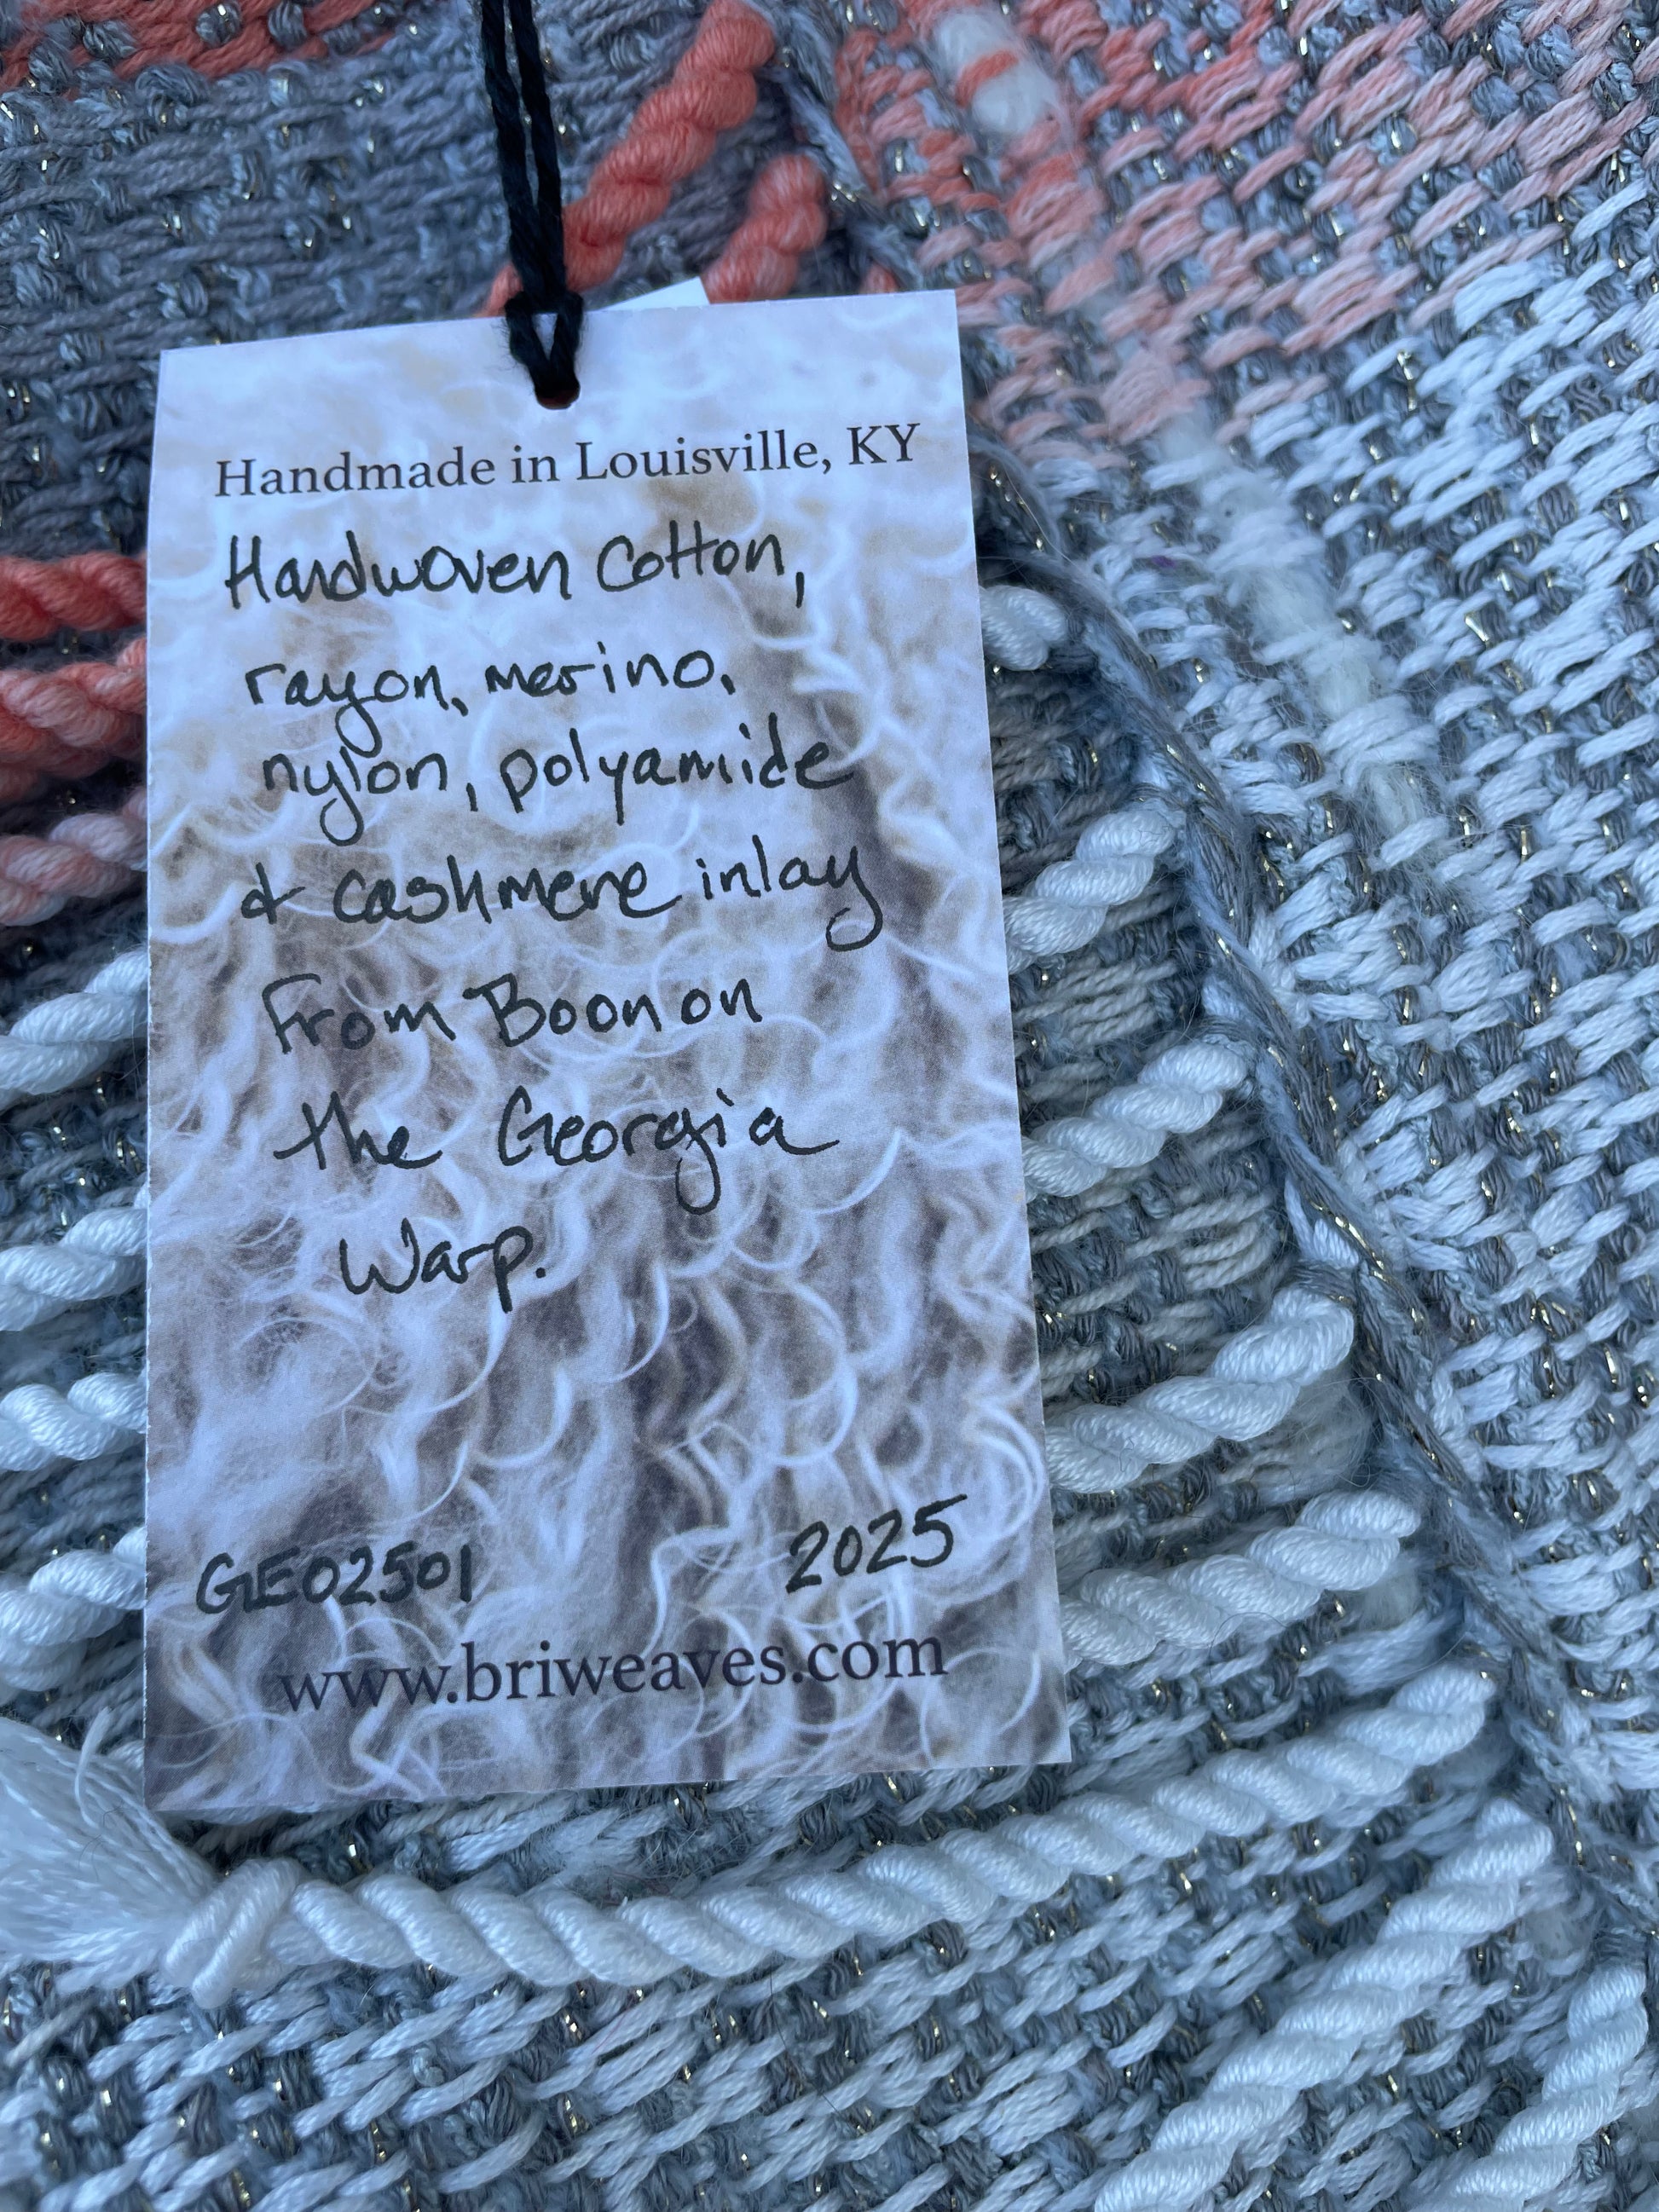 Handmade in Louisville, KY
Handwoven Cotton,
rayon, merino,
nylon, polyamide
& cashmere inlay
From Boon on
the Georgia
Warp.
GEO2501 2025
www.briweaves.com